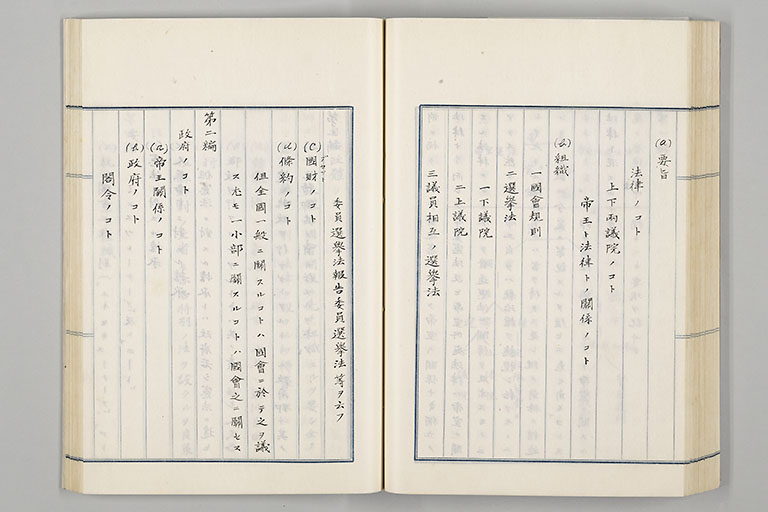 (a) 要旨
法律ノコト
上下両議院ノコト
帝王ト法律トノ關係ノコト
(b) 組織
一 國會規則
二 選挙法
一 下議院
二 上議院
三 議員相互ノ選挙法
委員選挙法報告委員選挙法等ヲ云フ
(C) 國財ノコト
(d) 條約ノコト
但全國一般ニ關スルコトハ國會ニ於テ之ヲ議
ス尤モ一小部ニ關スルコトハ國會之ニ關セス
第二編
政府ノコト
(a) 帝王關係ノコト
(b) 政府ノコト
閣令ノコト